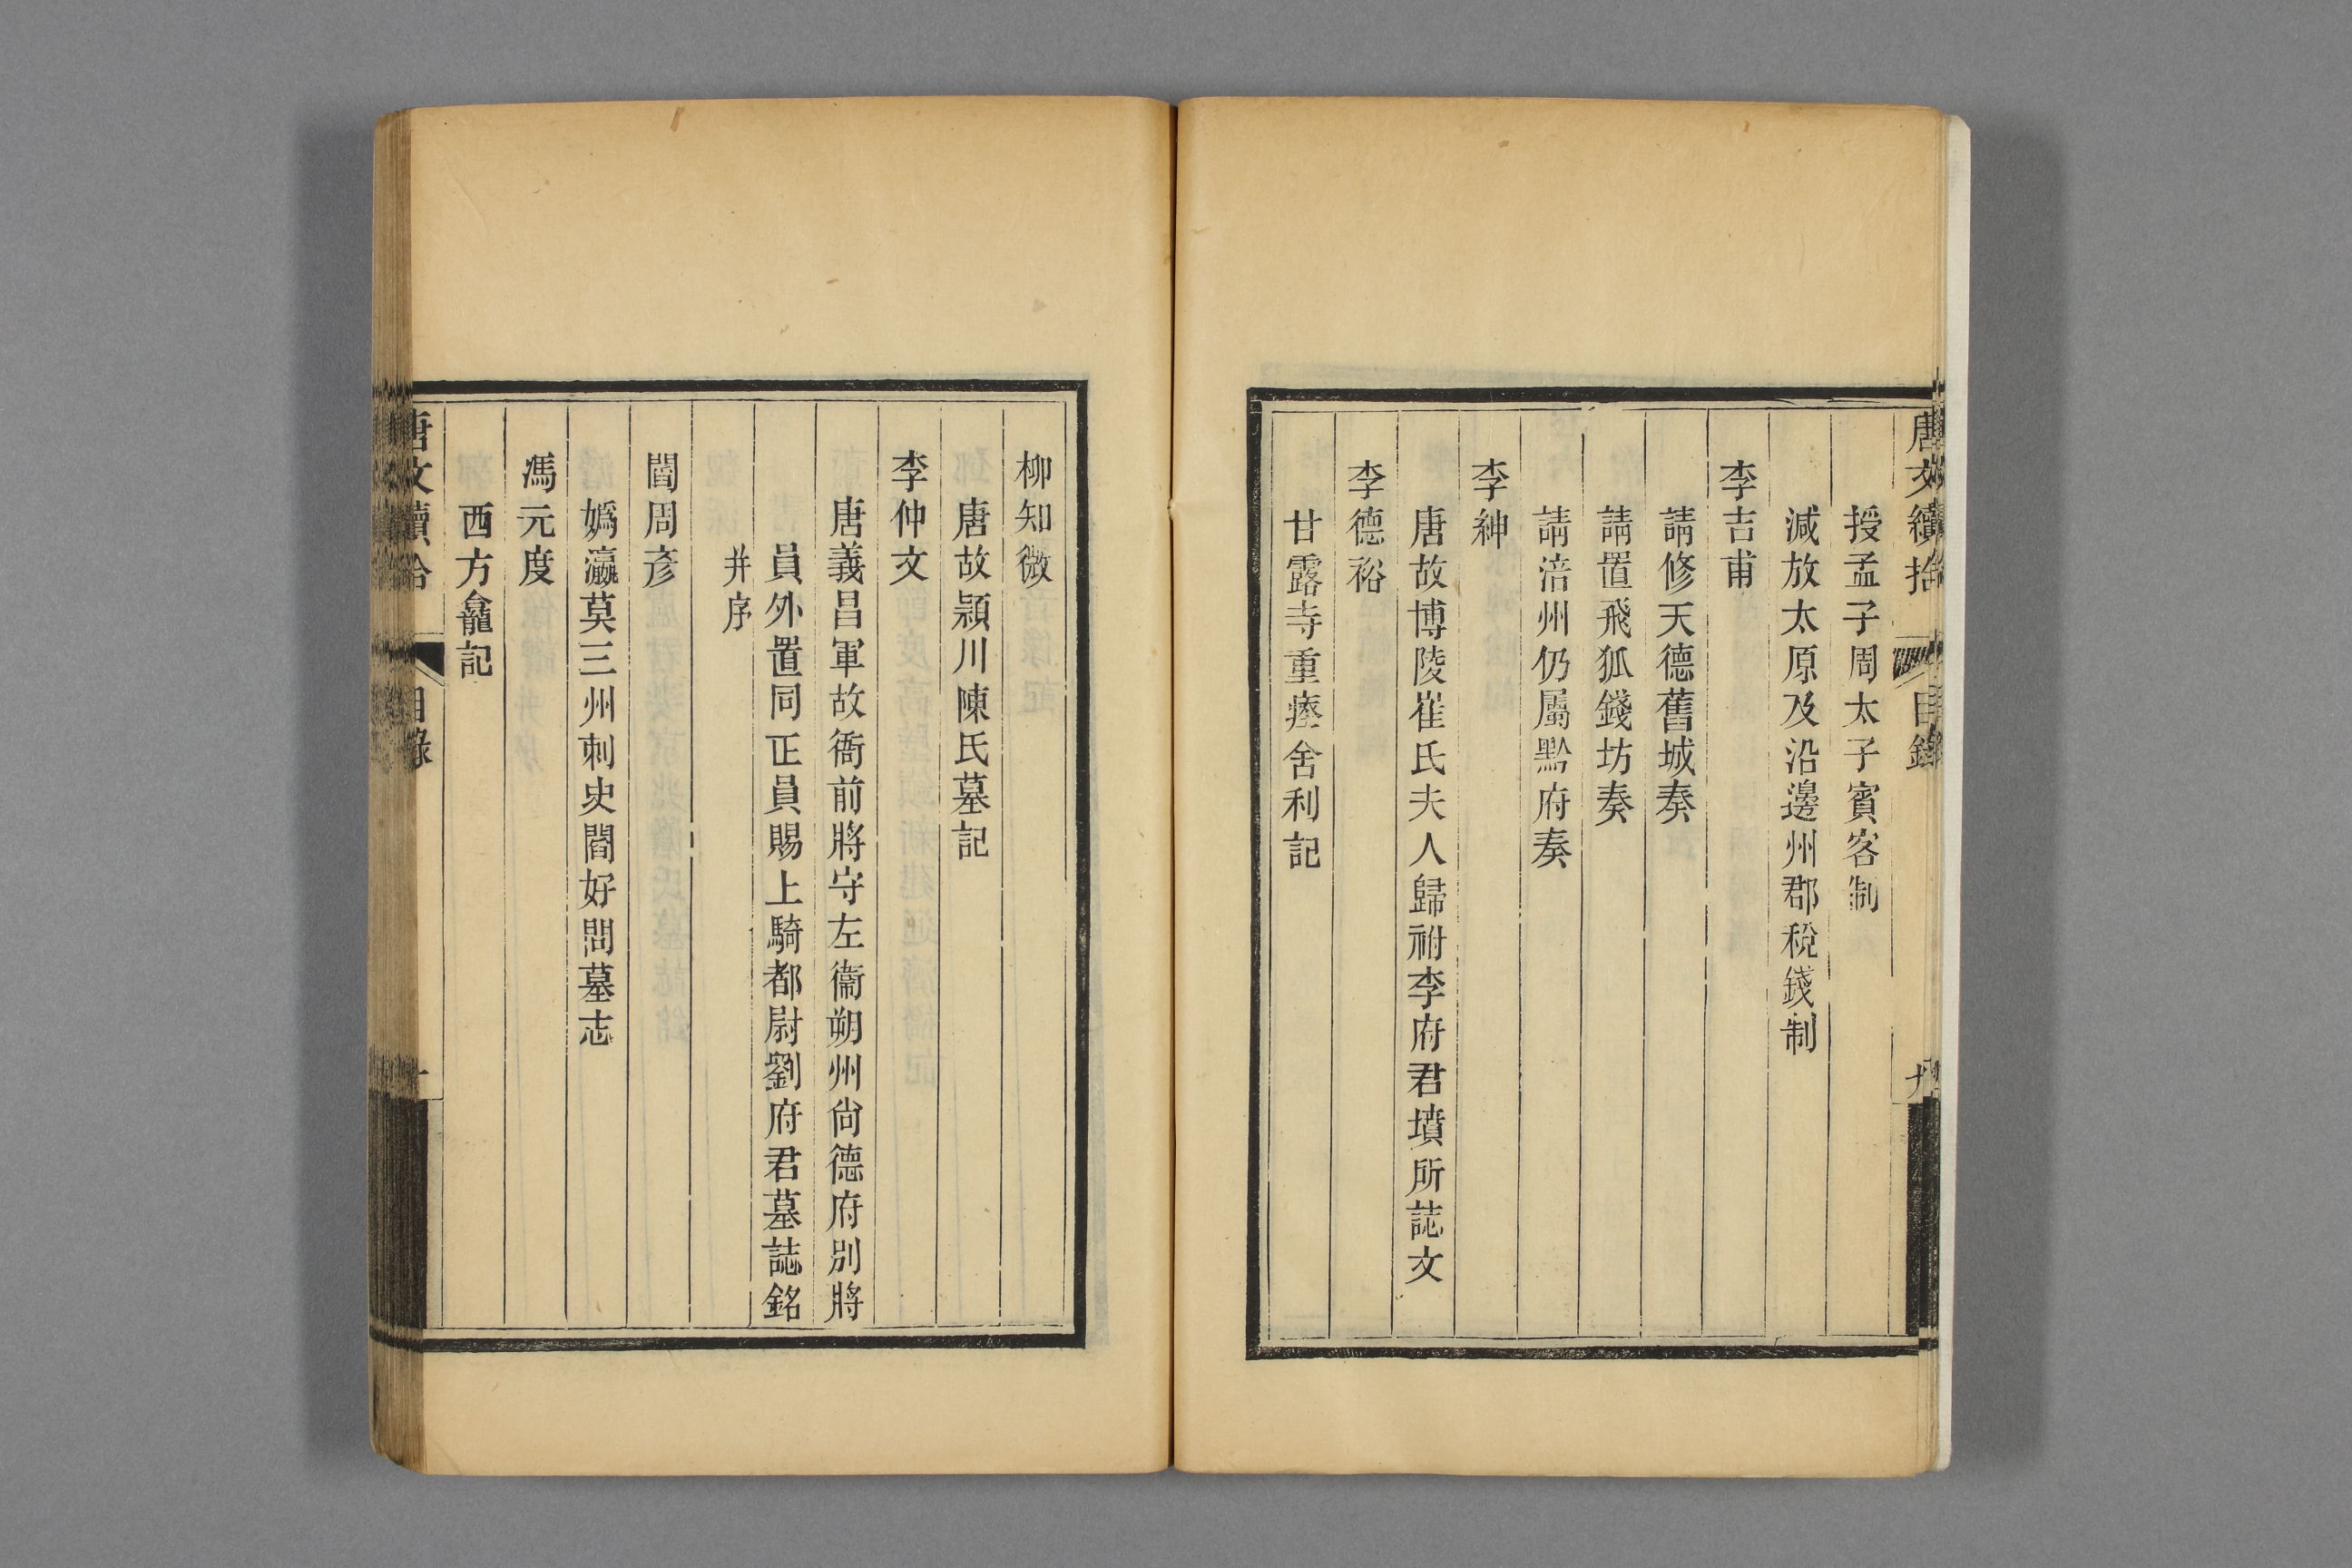 唐文續拾
目錄
九
授孟子周太子賓客制
減放太原及沿邊州郡稅錢制
李吉甫
請修天德舊城奏
請置飛狐錢坊奏
請涪州仍屬黔府奏
李紳
唐故博陵崔氏夫人歸祔李府君墳所誌文
李德裕
甘露寺重瘞舍利記
柳知微
唐故潁川陳氏墓記
李仲文
唐義昌軍故衙前將守左衞朔州尙德府別將
員外置同正員賜上騎都尉劉府君墓誌銘
并序
閻周彥
嬀瀛莫三州刺史閻好問墓志
馮元度
西方龕記
唐文續拾
目錄